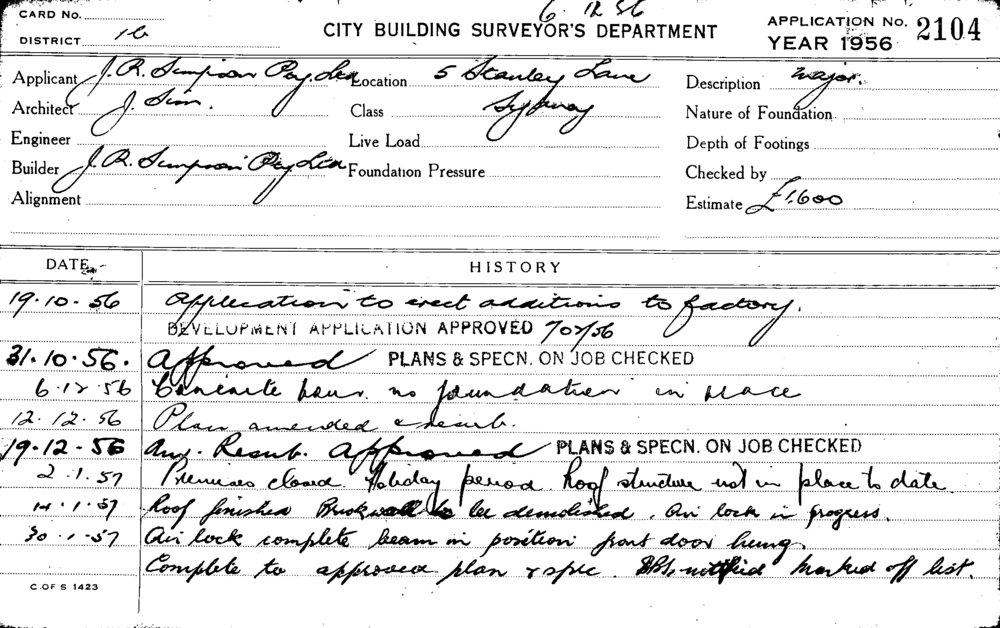 6. 12 56
CARD No.
DISTRICT 16
CITY BUILDING SURVEYOR'S DEPARTMENT
APPLICATION No. 2104
YEAR 1956
Applicant J. R. Simpson Pty. Ltd Location 5 Stanley Lane Description Major.
Architect J. Sim. Class Sydney Nature of Foundation
Engineer Live Load Depth of Footings
Builder J. R. Simpson Pty Ltd Foundation Pressure Checked by
Alignment Estimate £1,600
DATE HISTORY
19.10.56 Application to erect additions to factory.
DEVELOPMENT APPLICATION APPROVED 702/56
31.10.56. Approved PLANS & SPECN. ON JOB CHECKED
6.12.56 Concrete no foundation in place
12.12.56 Plan amended & resub.
19.12.56 Resub. Approved PLANS & SPECN. ON JOB CHECKED
2.1.57 Premises closed Holiday period. Roof structure not in place to date
14.1.57 Roof finished Brickwall to be demolished. Air lock in progress.
30.1.57 Air lock complete beam in position front door hung.
Complete to approved plan & spec. notified Marked off list.
C. OF S 1423